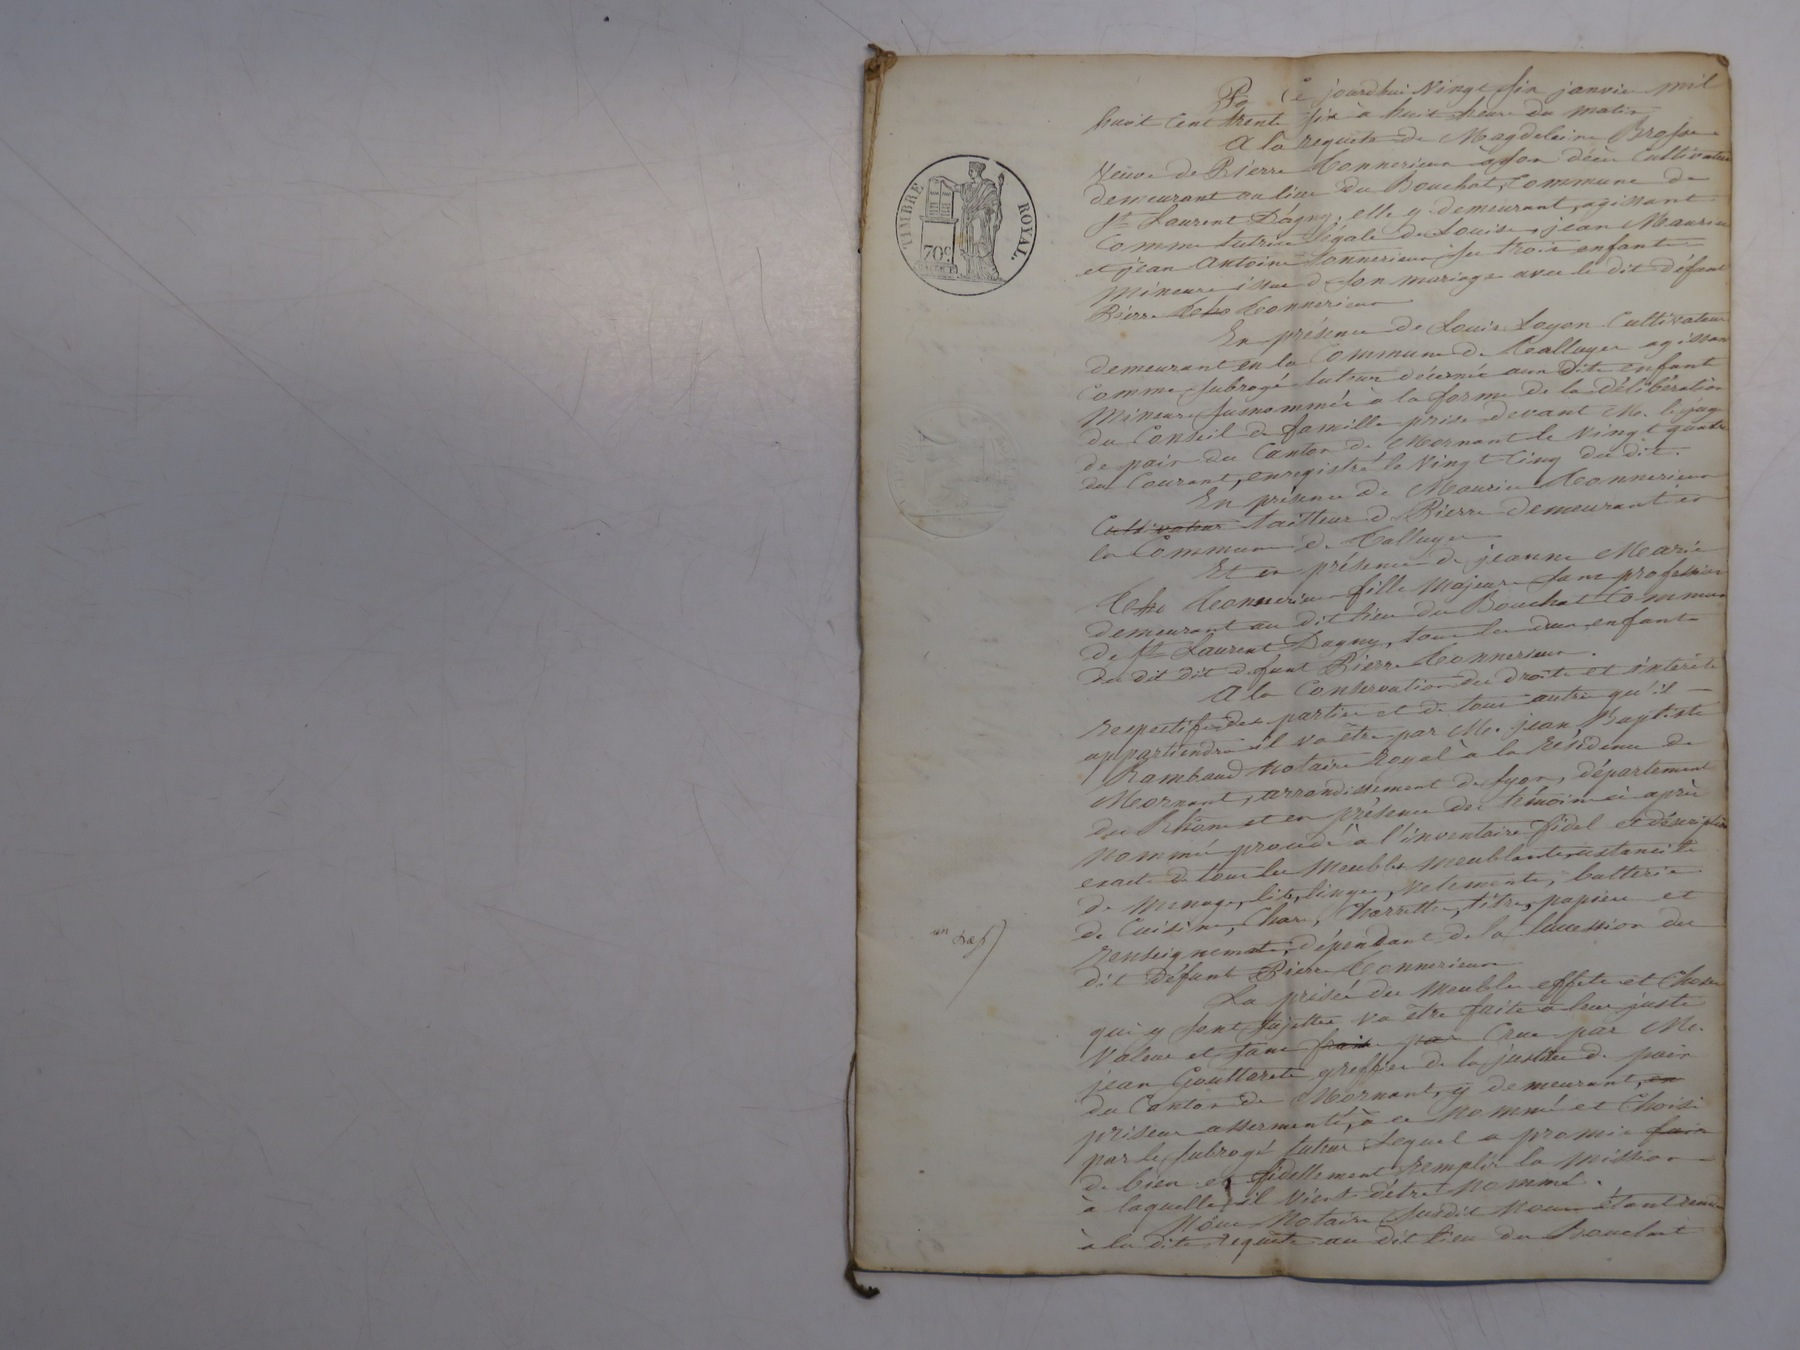 TIMBRE ROYAL.
70c
Ce jourdhui Vingt six janvier mil
huit Cent trente six à huit heure du matin
A la requete de Magdeleine Brosse
Veuve de Pierre Connerieux à son décè Cultivateur
demeurant au lieu du Bouchat, Commune de
St. Laurent Dagny, elle y demeurant, agissant
Comme tutrice légale de Louise, jean Maurice
et jean Antoine Connerieux ses trois enfants
Mineurs issus de son mariage avec le dit défunt
Pierre Connerieux
En présence de Louis Loyon Cultivateur
demeurant en la Commune de agissant
Comme subrogé tuteur décerné aux dits enfant
Mineurs susnommés à la forme de la délibération
du Conseil de famille prise devant M. le juge
de paix du Canton de Mornant le Vingt quatre
du Courant, enregistré le Vingt Cinq du dit.
En présence de Maurice Connerieux
Cultivateur tailleur de Pierre demeurant en
la Commune de Talluyer
Et en présence de jeanne Marie
Connerieux fille Majeure sans profession
demeurant au dit lieu du Bouchat Commune
de St Laurent Dagny, tous les deux enfants
du dit dit défunt Pierre Connerieux.
A la Conservation des droits et intérêts
Respectifs des parties et de tous autre qu'il
appartiendra il va être par Me. jean Baptiste
Rambaud Notaire Royal à la résidence de
Mornant, arrondissement de Lyon, département
du Rhône et en présence des témoins ci après
nommé procédé à l'inventaire fidel et déscription
exacte de tous les Meubles meublants, ustancile
de Menage, lits, linges, Vetements, batterie
un Ras
de Cuisine, Chars, Charrette, titres, papiers et
renseignements, dépendant de la succession du
dit Défunt Pierre Connerieux
La prisée des Meubles effets et Choses
qui y sont sujettes va être faite à leur juste
Valeur et sans frais par Crue par Me.
jean Gouttarete greffier de la justice de paix
du Canton de Mornant, y demeurant, en
priseur assermenté, à ce Nommé et Choisi
par le subrogé tuteur, lequel a promis fair
de bien et fidellement remplir la Mission
à laquelle il vient d'être nommé.
Nous Notaire susdit Nous étant rendu
à la dite requete au dit lieu du Bouchat